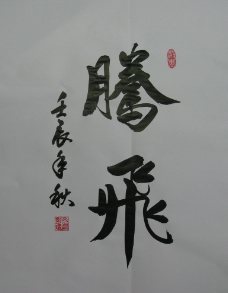 騰飛
壬辰年秋